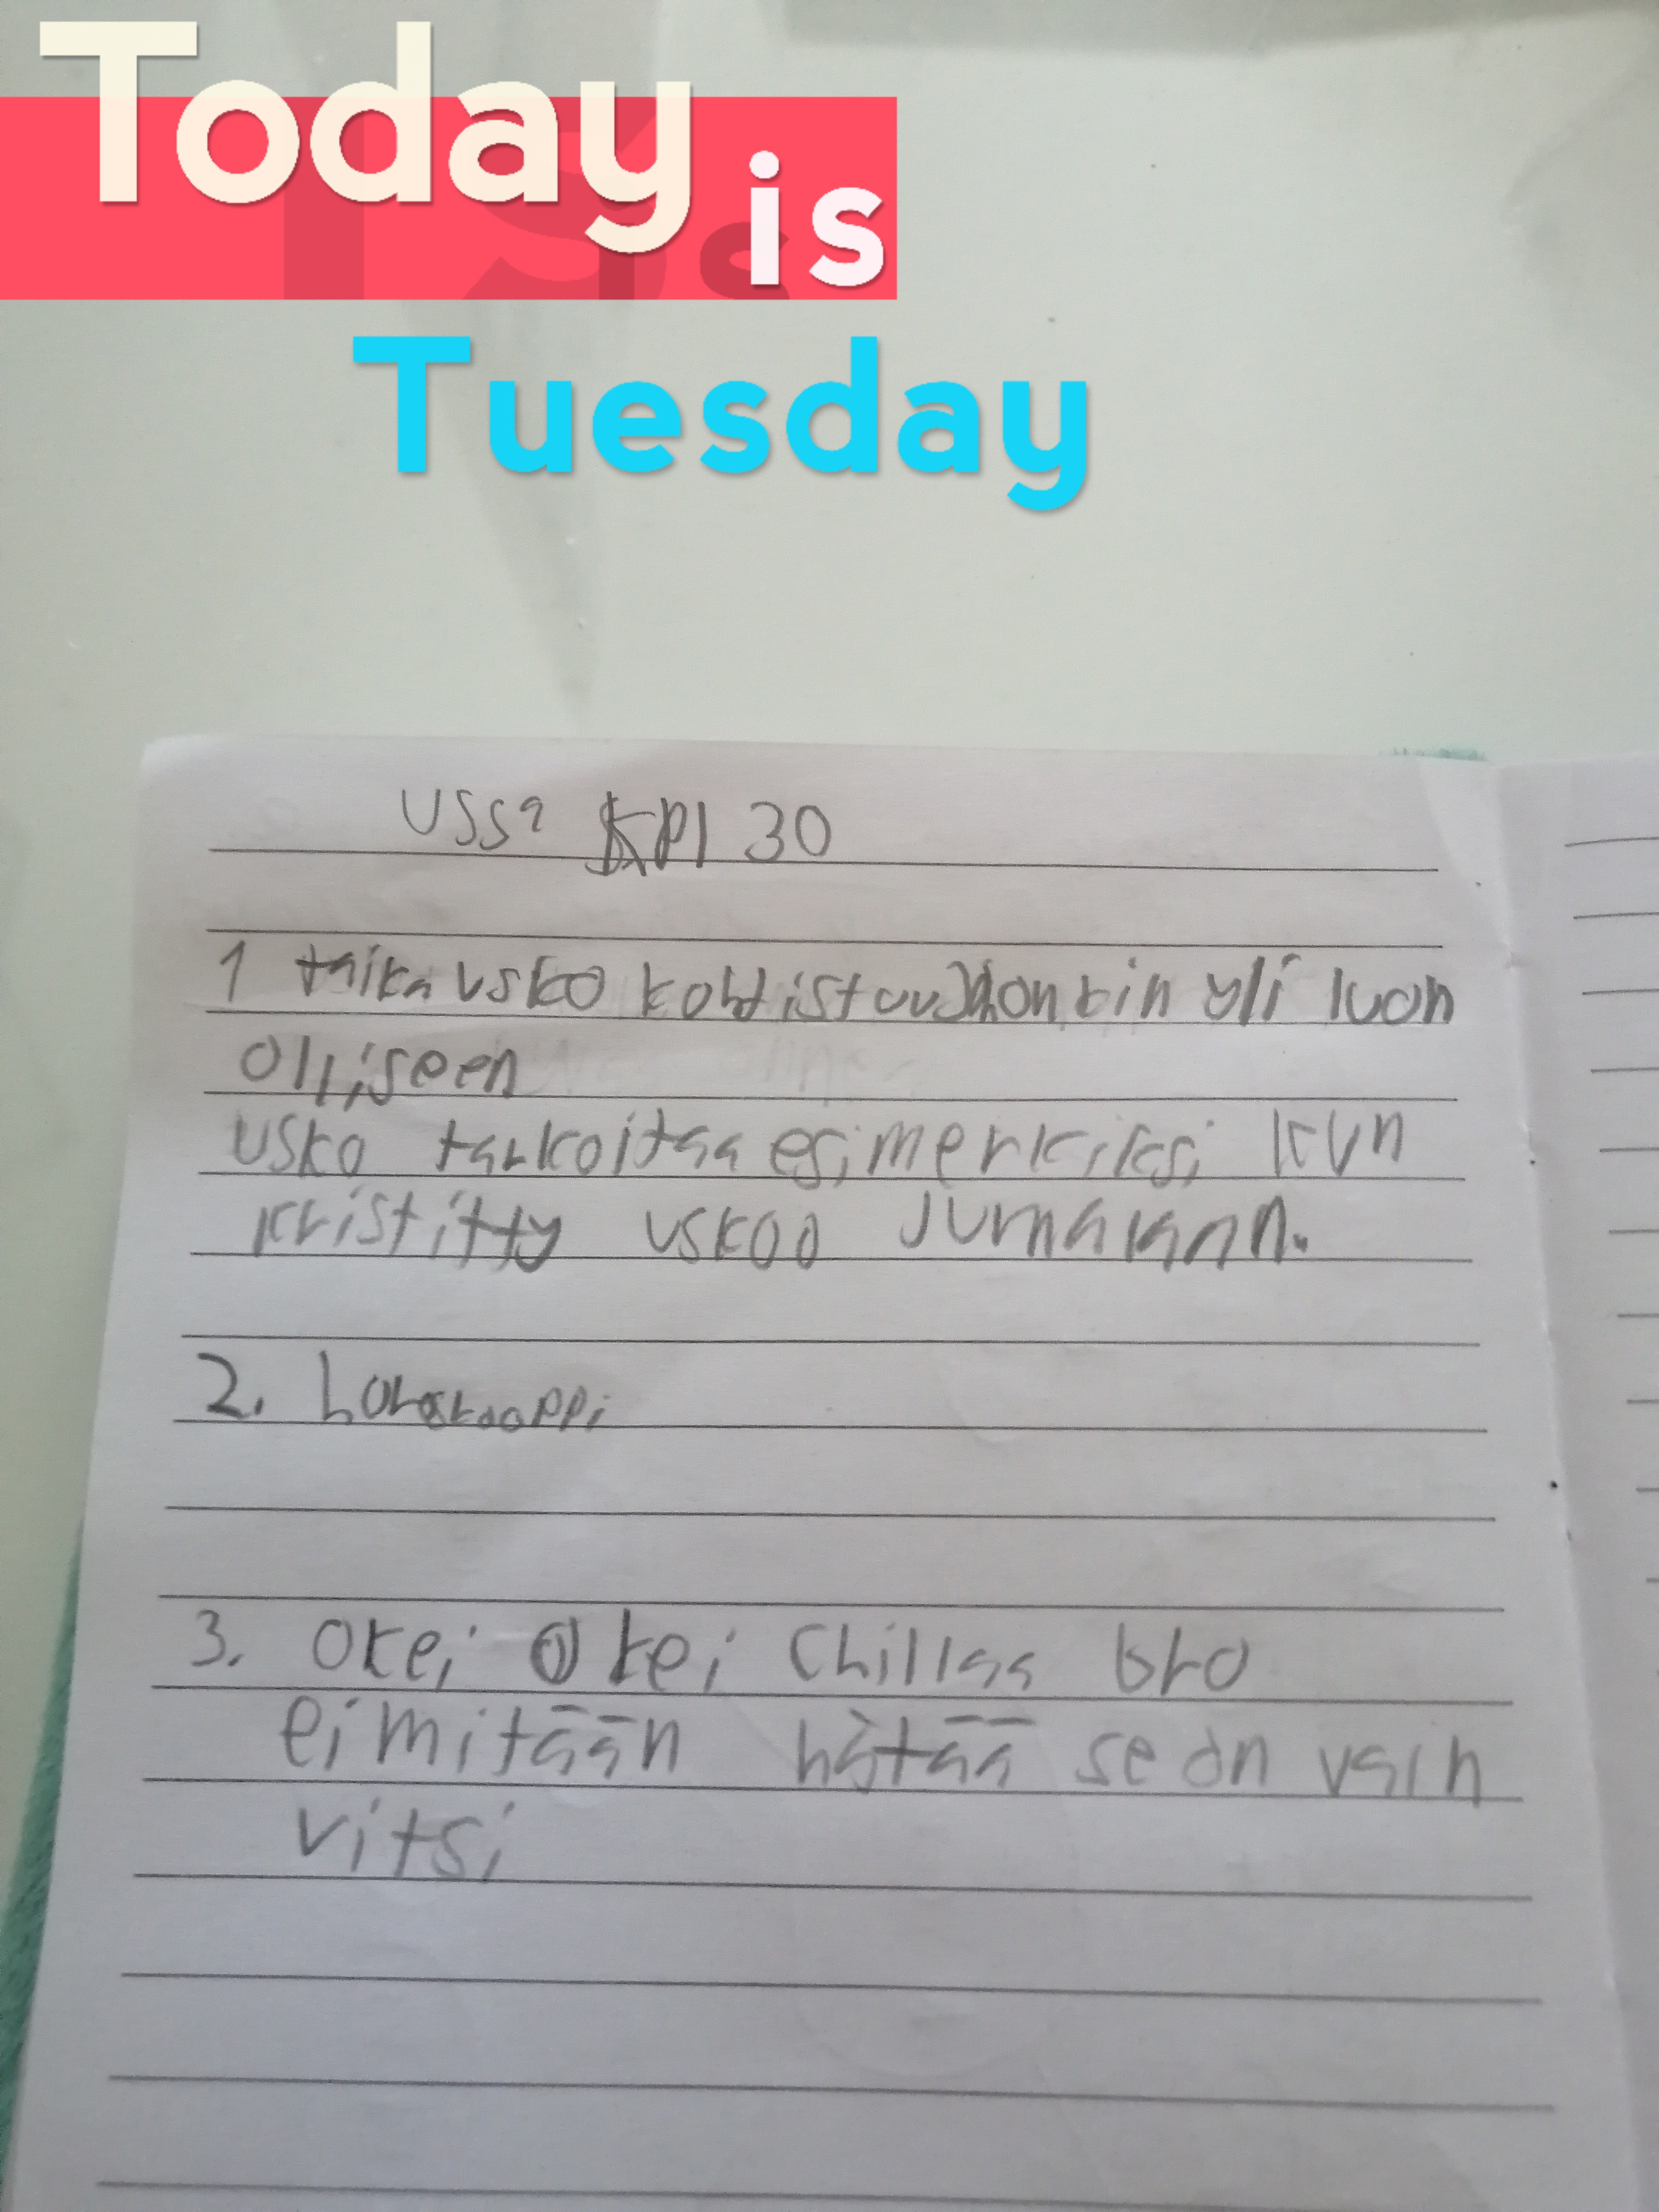 Today is
Tuesday
USSa KPl 30
1 taika usko kohdistuu johonkin yli luon
olliseen
usko tarkoitaa esimerkiksi kun
kristitty uskoo Jumalaan.
2. horoskooppi
3. okei okei chillaa bro
ei mitään hätää se on vain
vitsi